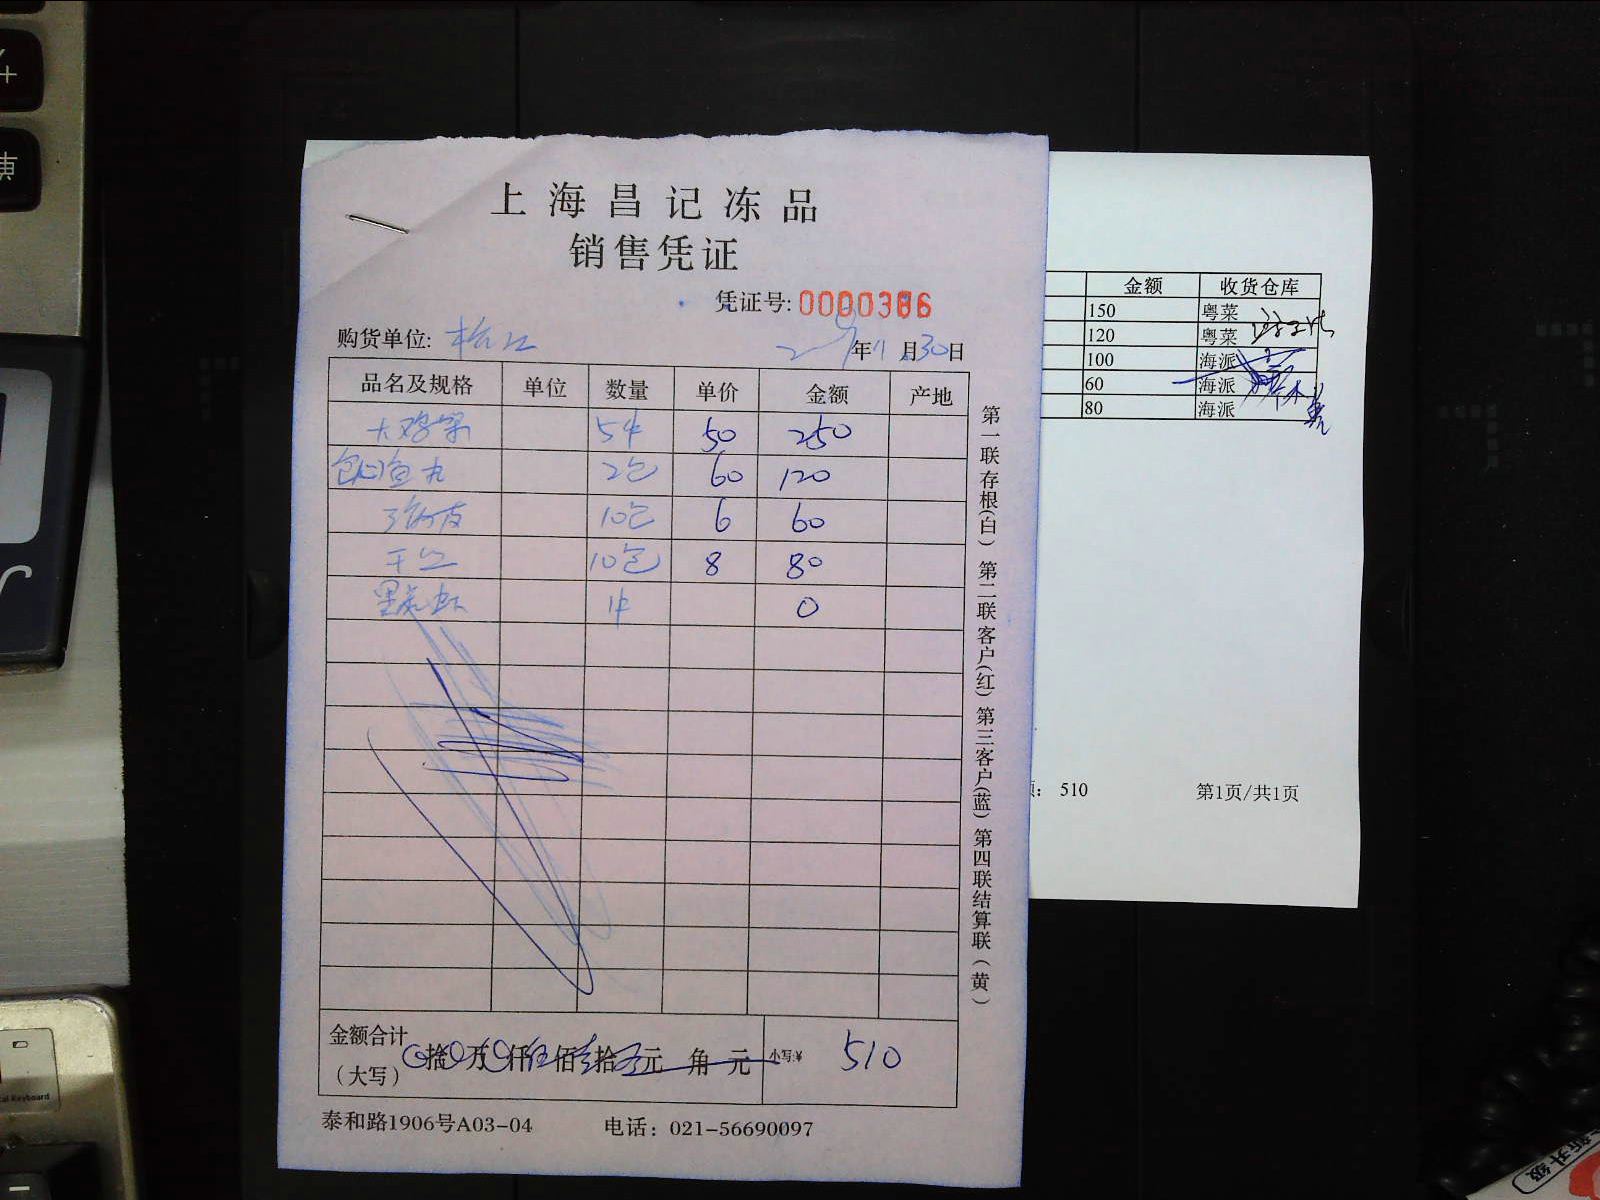 上海昌记冻品
销售凭证
凭证号: 0000386
购货单位: 松江
年11月30日
品名及规格 单位 数量 单价 金额 产地
大鸡架 5件 50 250
包心鱼丸 2包 60 120
10包 6 60
干丝 10包 8 80
黑虎虾 1件 0
金额合计
(大写)
拾万仟伍佰壹拾元角元
小写:¥ 510
泰和路1906号A03-04 电话: 021-56690097
第一联存根(白) 第二联客户(红) 第三客户(蓝) 第四联结算联(黄)
金额 收货仓库
150 粤菜
120 粤菜
100 海派
60 海派
80 海派
510 第1页/共1页